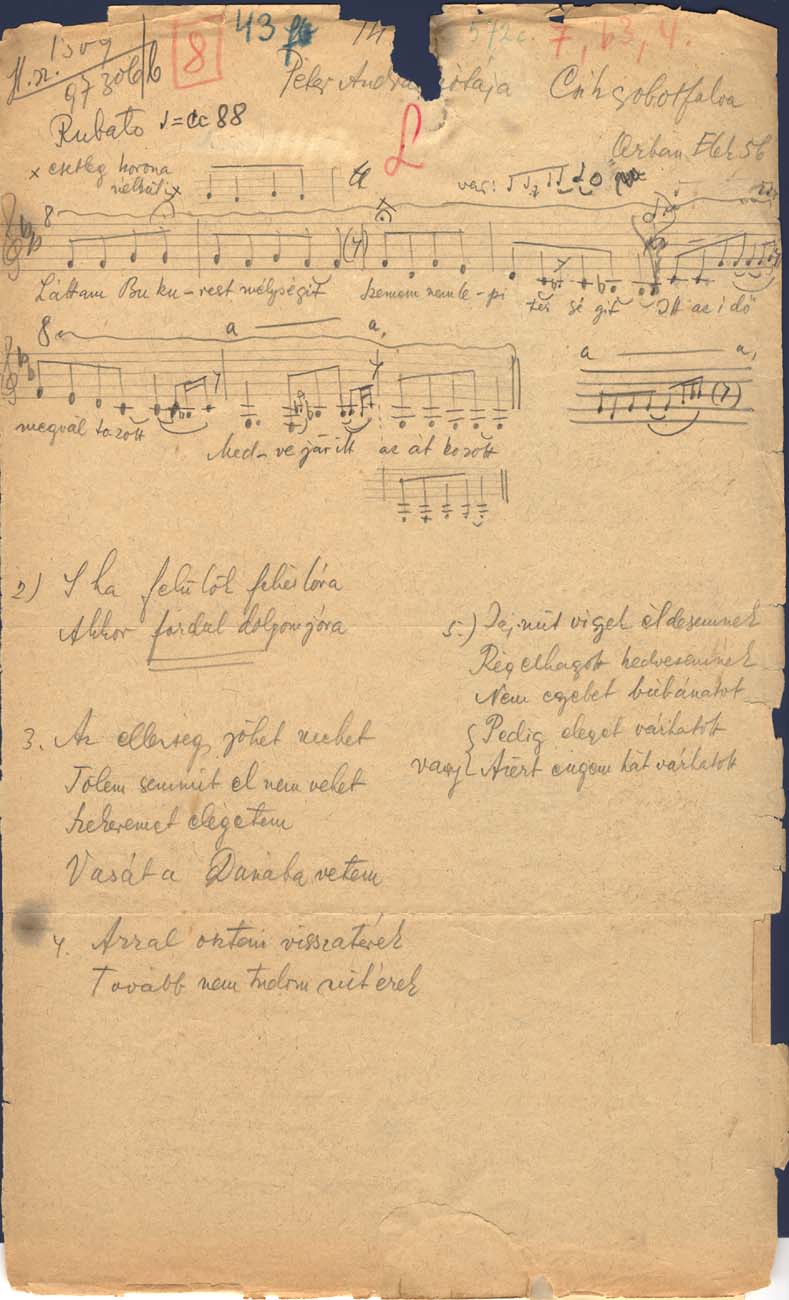 1309
H.sz. 97306/b
8
43
14
572c.
7, b3, 4.
Péter András nótája Csíkszobotfalva
Rubato ♩=cc 88
L
Orbán Elek 56
x esetleg korona
nélkül
var:
8
Láttam Buku-rest mélységit Szemem nemle-pi
tér sé git Itt az i dő
8 a a,
megvál to zott
Med-ve jár itt az át kozott
a a,
(7)
2) S ha felülök fehér lóra
Akkor fordul dolgom jóra
3. Az ellenség jöhet mehet
Tőlem semmit el nem vehet
Szekeremet elégetem
Vasát a Dunába vetem
4. Azzal osztán visszatérek
Tovább nem tudom mit érek
5.) Fejmit viget édesemnek
Rég elhagott kedvesemnek
Nem egebet búbánatot
Pedig eleget várhatott
vagy Azért engem hát várhatott